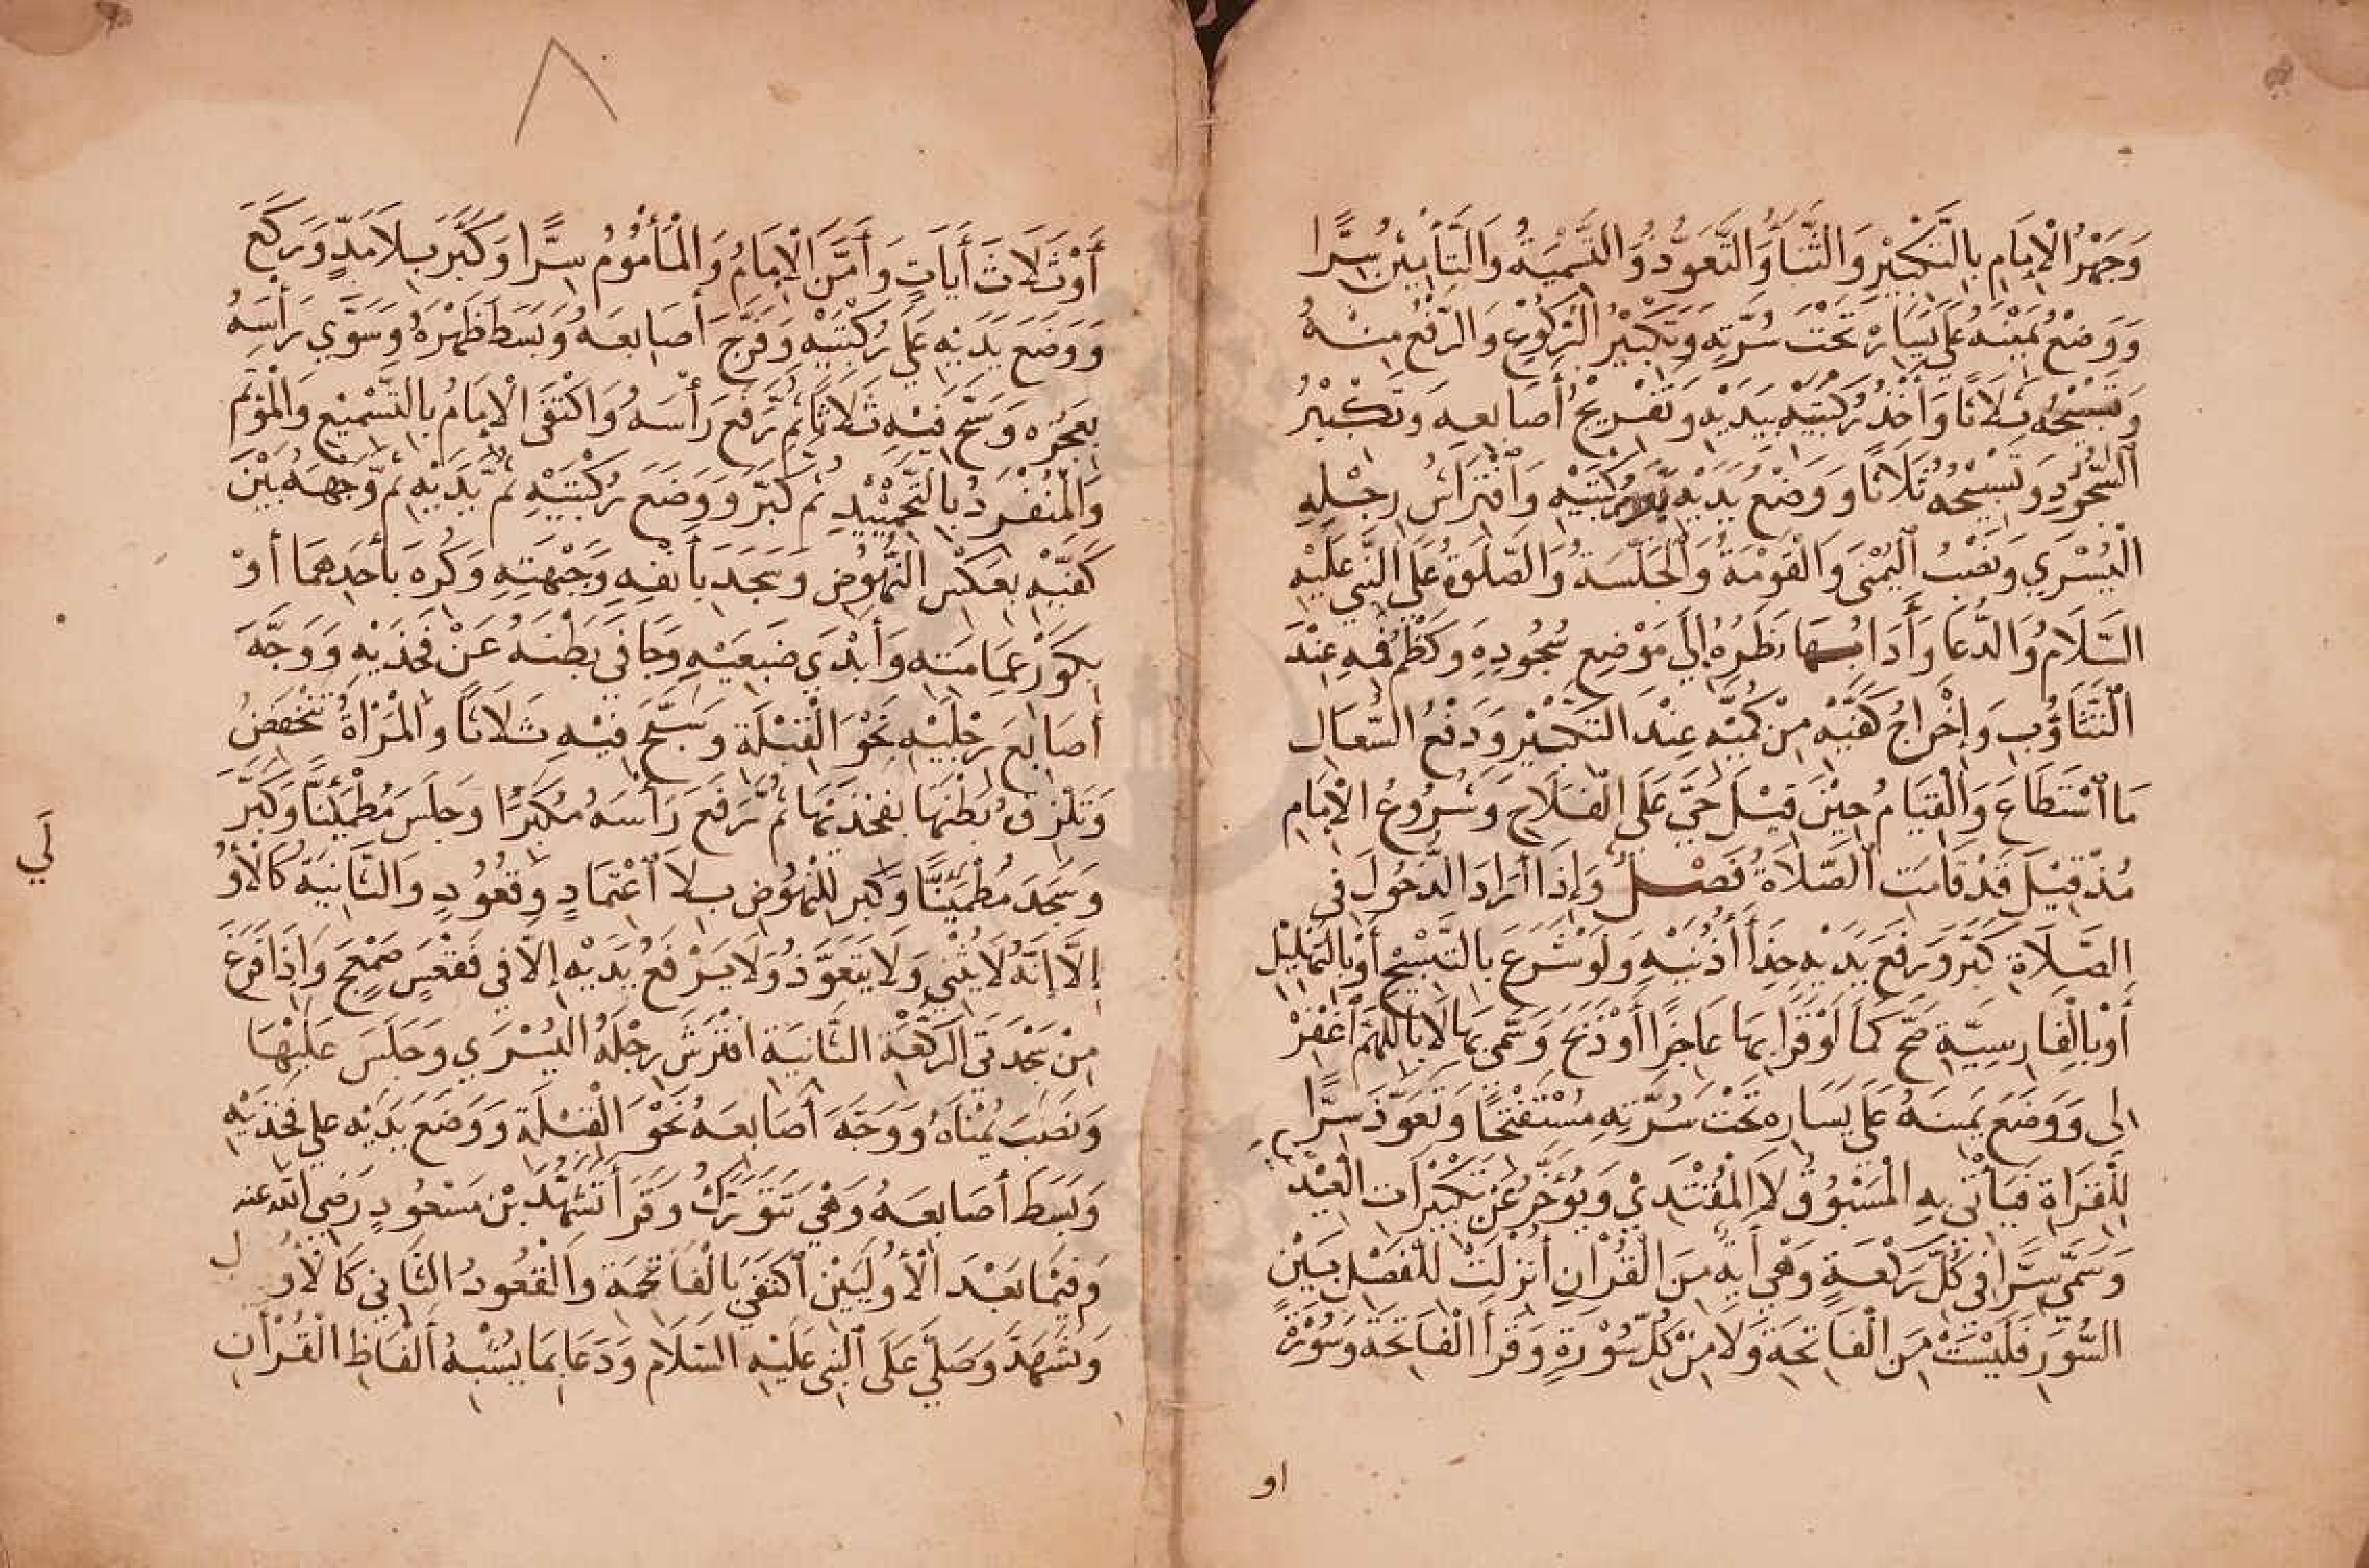 وَجَهْرُ الْإِمَامِ بِالتَّكْبِيْرِ وَالثَّنَاُ وَالتَّعَوُّذُ وَالتَّسْمِيَةُ وَالتَّأْمِيْنُ سِرًّا
وَوَضْعُ يَمِيْنِهِ عَلَى يَسَارِهِ تَحْتَ سُرَّتِهِ وَتَكْبِيْرُ الرُّكُوْعِ وَالرَّفْعُ مِنْهُ
وَتَسْبِيْحُهُ ثَلَاثًا وَأَخْذُ رُكْبَتَيْهِ بِيَدَيْهِ وَتَفْرِيْجُ أَصَابِعِهِ وَتَكْبِيْرُ
السُّجُوْدِ وَتَسْبِيْحُهُ ثَلَاثًا وَوَضْعُ يَدَيْهِ وَرُكْبَتَيْهِ وَافْتِرَاشُ رِجْلِهِ
الْيُسْرَي وَنَصْبُ الْيُمْنَى وَالْقَوْمَةُ وَالْجَلْسَةُ وَالصَّلٰوةُ عَلَى النَّبِيِّ عَلَيْهِ
السَّلَامُ وَالدُّعَا وَأَدَابُهَا نَظَرُهُ إِلَي مَوْضِعِ سُجُودِهِ وَكَظْمُ فَمِهِ عِنْدَ
التَّثَاؤُبِ وَإِخْرَاجُ كَفَّيْهِ مِنْ كُمَّيْهِ عِنْدَ التَّكْبِيْرِ وَدَفْعُ السُّعَالِ
مَا اسْتَطَاعَ وَالْقِيَامُ حِيْنَ قِيْلَ حَيَّ عَلَى الْفَلَاحِ وَشُرُوْعُ الْإِمَامِ
مُذْ قِيْلَ قَدْ قَامَتِ الصَّلَاةُ فَصْلٌ وَإِذَا أَرَادَ الدُّخُوْلَ فِي
الصَّلَاةِ كَبَّرَ وَرَفَعَ يَدَيْهِ حِذَأَ أُذُنَيْهِ وَلَوْ شَرَعَ بِالتَّسْبِيْحِ أَوْ بِالتَّهْلِيْلِ
أَوْ بِالْفَارِسِيَّةِ صَحَّ كَمَا لَوْ قَرَأَ بِهَا عَاجِزًا أَوْ ذَبَحَ وَسَمَّى بِهَا لَا بِاللّٰهُمَّ اغْفِرْ
لِي وَوَضَعَ يَمِينَهُ عَلَى يَسَارِهِ تَحْتَ سُرَّتِهِ مُسْتَفْتِحًا وَتَعَوَّذَ سِرًّا
لِلْقِرَاةِ فَيَأْتِي بِهِ الْمَسْبُوْقُ لَا الْمُقْتَدِيْ وَيُؤَخَّرُ عَنْ تَكْبِيْرَاتِ الْعِيْدِ
وَسَمَّي سِرًّا فِي كُلِّ رَكْعَةٍ وَهْيَ أَيَةٌ مِنَ الْقُرْاٰنِ أُنْزِلَتْ لِلْفَصْلِ بَيْنَ
السُّوَرِ فَلَيْسَتْ مِنَ الْفَاتِحَةِ وَلَا مِنْ كُلِّ سُوْرَةٍ وَقَرَأَ الْفَاتِحَةَ وَسُوْرَةً
او
٨
أَوْ ثَلَاثَ أَيَاتٍ وَأَمَّنَ الْإِمَامُ وَالْمَأْمُوْمُ سِرًّا وَكَبَّرَ بِلَا مَدٍّ وَرَكَعَ
وَوَضَعَ يَدَيْهِ عَلَى رُكْبَتَيْهِ وَفَرَّجَ أَصَابِعَهُ وَبَسَطَ ظَهْرَهُ وَسَوَّي رَأْسَهُ
بِعَجُزِهِ وَسَبَّحَ فِيْهِ ثَلَاثًا ثُمَّ رَفَعَ رَأْسَهُ وَاكْتَفَى الْإِمَامُ بِالتَّسْمِيْعِ وَالْمُؤْتَمُّ
وَالْمُنْفَرِدُ بِالتَّحْمِيْدِ ثُمَّ كَبَّرَ وَوَضَعَ رُكْبَتَيْهِ ثُمَّ يَدَيْهِ ثُمَّ وَجْهَهُ بَيْنَ
كَفَّيْهِ بِعَكْسِ النُّهُوْضِ وَسَجَدَ بِأَنْفِهِ وَجَبْهَتِهِ وَكُرِهَ بِأَحَدِهِمَا أَوْ
بِكَوْرِ عِمَامَتِهِ وَأَبْدَي ضَبْعَيْهِ وَجَافَي بَطْنَهُ عَنْ فَخِذَيْهِ وَوَجَّهَ
أَصَابِعَ رِجْلَيْهِ نَحْوَ الْقِبْلَةِ وَسَبَّحَ فِيْهِ ثَلَاثًا وَالْمَرْاةُ تَنْخَفِضُ
وَتَلْزِقُ بَطْنَهَا بِفَخِذَيْهَا ثُمَّ رَفَعَ رَأْسَهُ مُكَبِّرًا وَجَلَسَ مُطْمَئِنًّا وَكَبَّرَ
وَسَجَدَ مُطْمَئِنًّا وَكَبَّرَ لِلنُّهُوْضِ بِلَا اعْتِمَادٍ وَقُعُوْدٍ وَالثَّانِيَةُ كَالْأُوْ
لَي
إِلَّا إِنَّهُ لَا يُثْنِي وَلَا يَتَعَوَّذُ وَلَا يَرْفَعُ يَدَيْهِ إِلَّا فِي فَقْعَسٍ صَمْعَجٍ وَإِذَا فَرَغَ
مِنْ سَجْدَتَيِ الرَّكْعَةِ الثَّانِيَةِ افْتَرَشَ رِجْلَهُ الْيُسْرَي وَجَلَسَ عَلَيْهَا
وَنَصَبَ يُمْنَاهُ وَوَجَّهَ أَصَابِعَهُ نَحْوَ الْقِبْلَةِ وَوَضَعَ يَدَيْهِ عَلَي فَخِذَيْهِ
وَبَسَطَ أَصَابِعَهُ وَهْيَ تَتَوَرَّكُ وَقَرَأَ تَشَهُّدَ بْنِ مَسْعُوْدٍ رَضِيَ اللّٰه عنه
وَفِيْمَا بَعْدَ الْأُوْلَيَيْنِ اكْتَفَي بِالْفَاتِحَةِ وَالْقُعُوْدُ الثَّانِي كَالْأَوَّ ل
وَتَشَهَّدَ وَصَلَّي عَلَى النَّبِيِّ عَلَيْهِ السَّلَام وَدَعَا بِمَا يُشْبِهُ أَلْفَاظَ الْقُرْأٰنِ